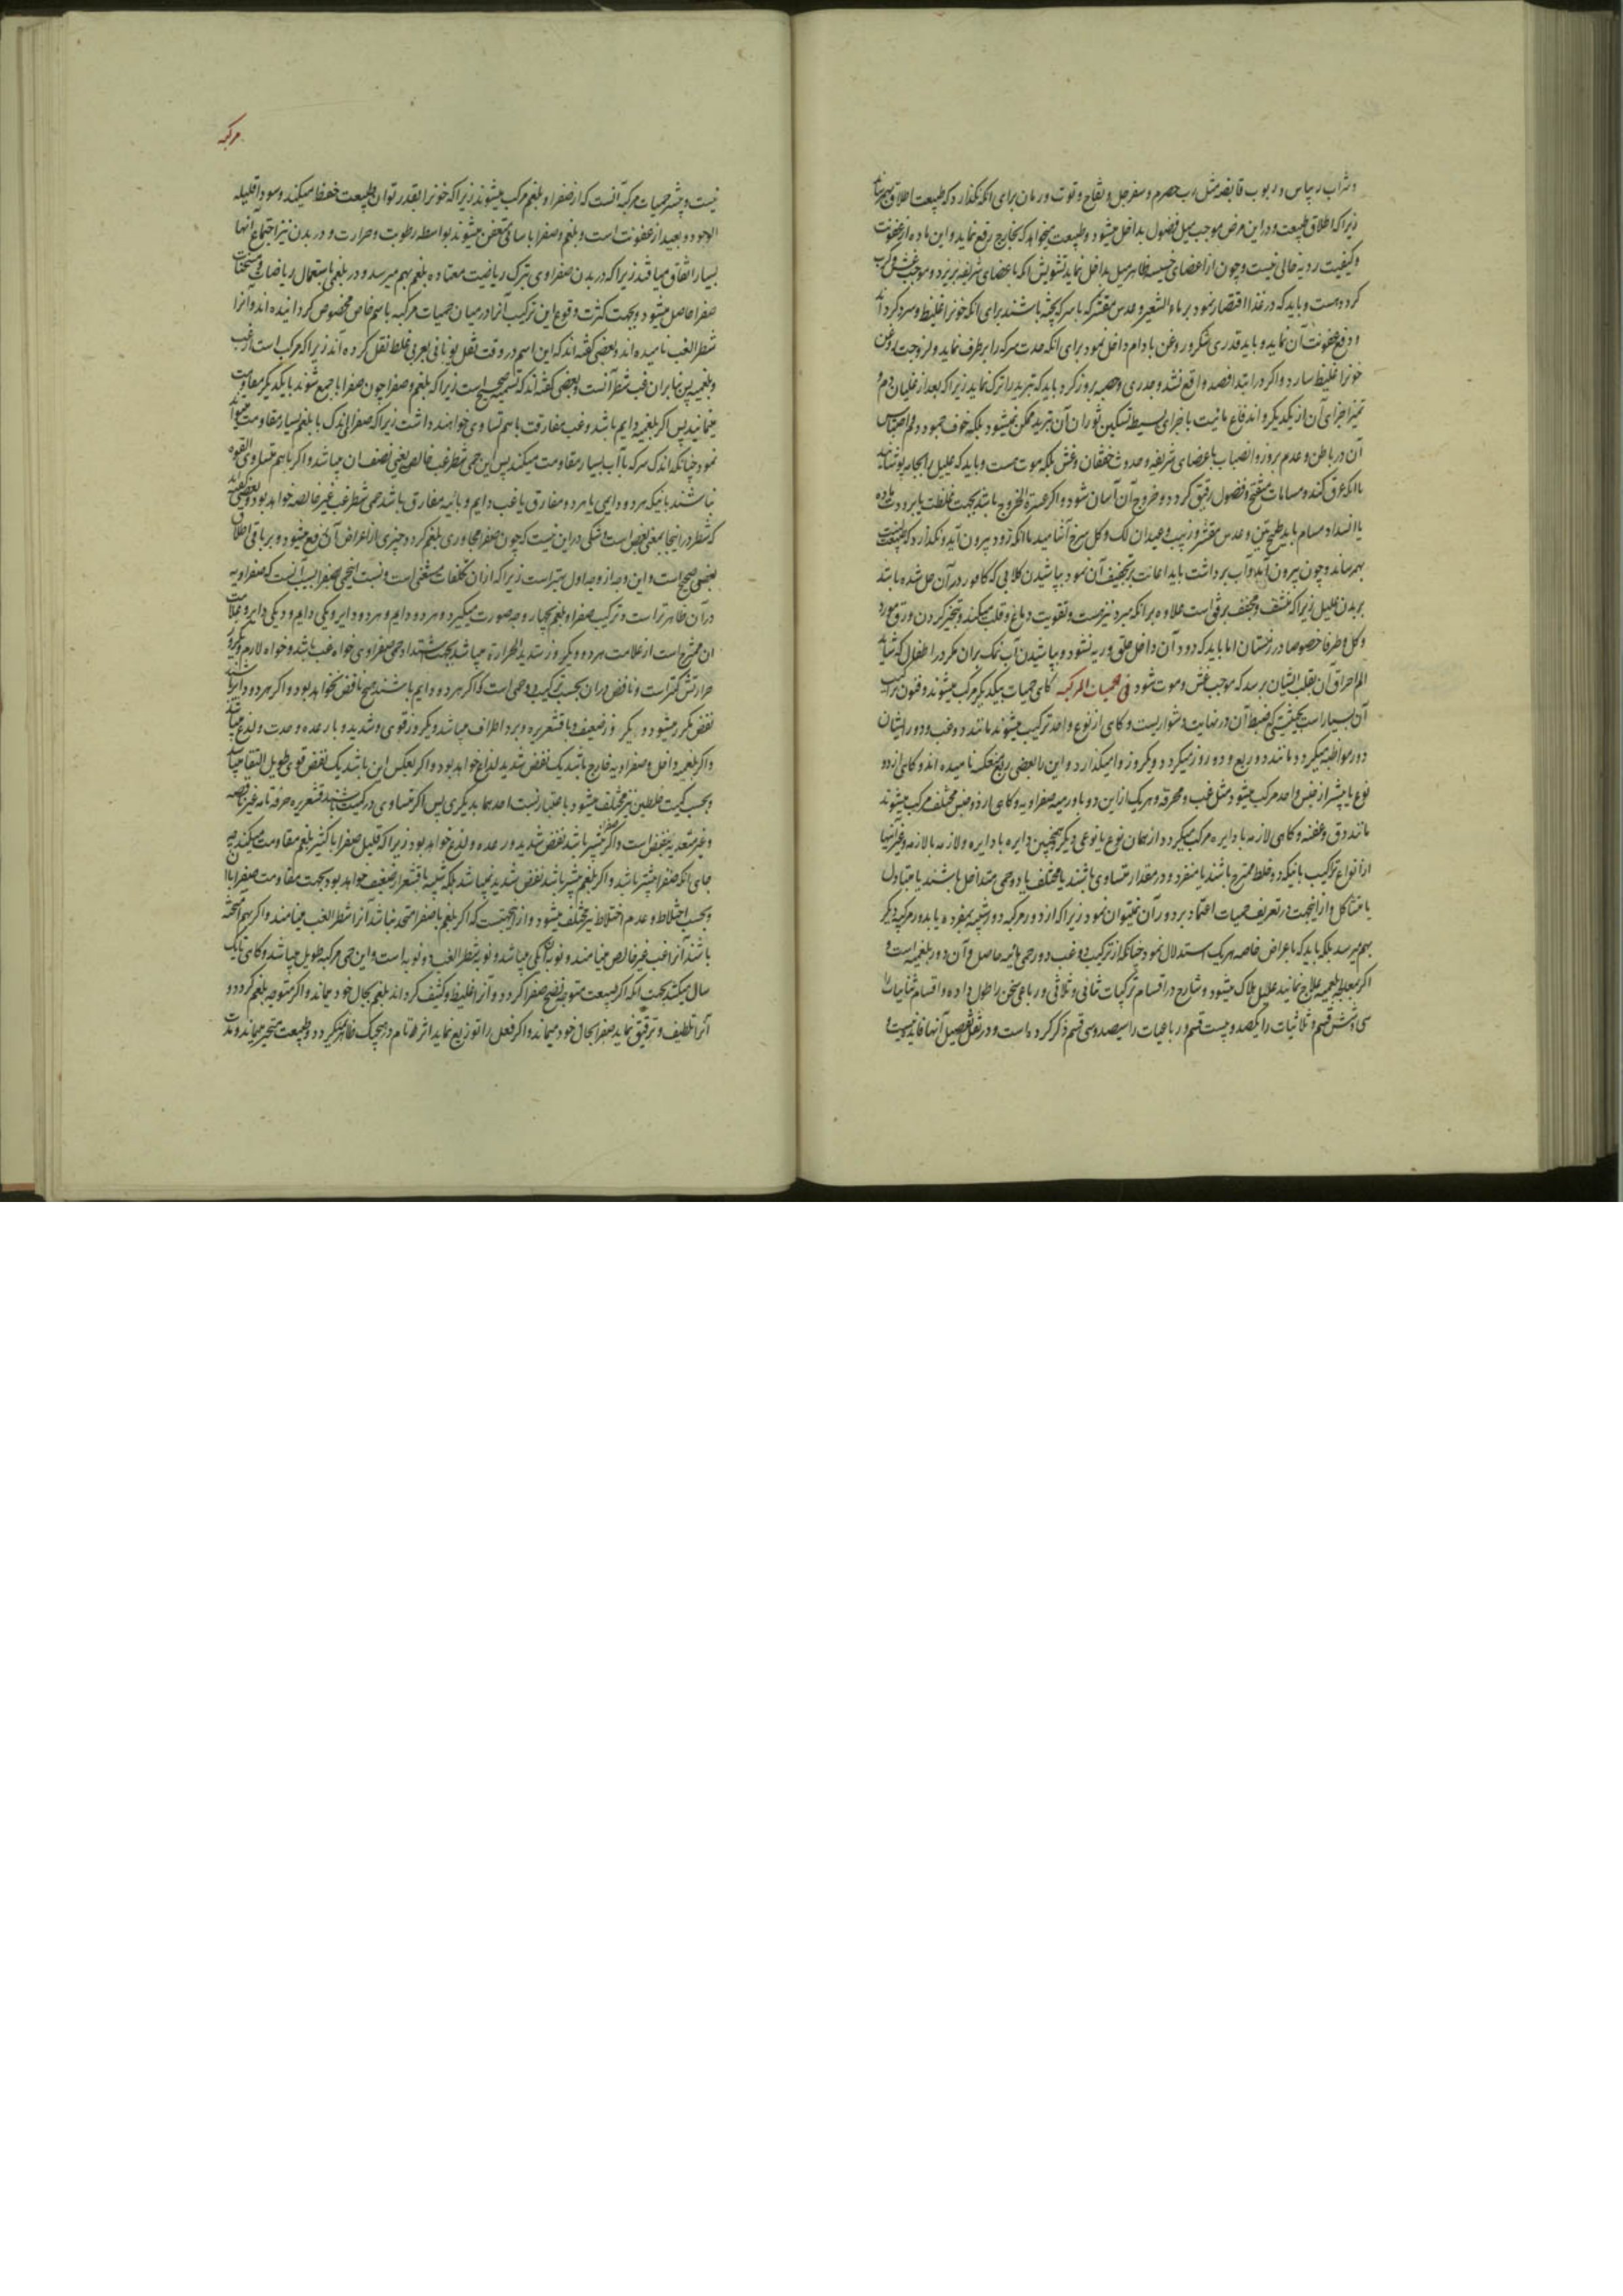 و شراب ریباس و ربوب قابضه مثل رب حصرم و سفرجل و تفاح و توت و رمان برای انکه نکذارد که طبیعت اطلاق بهم رساند
زیرا که اطلاق طبیعت در این مرض موجب میل فضول بداخل میشود و طبیعت میخواهد که بخارج رفع نماید و این ماده از عفونت
و کیفیت ردیه خالی نیست و چون از اعضای خسیسه ظاهر میل بداخل نماید تشویش اکه باعضای شریفه بریزد و موجب غش و کرب
کردد هست و باید که در غذا اقتصار نمود بر ماء الشعیر و عدس مقشر که با سرکه پخته باشند برای انکه خونرا غلیظ و سرد کرداند
و دفع عفونت آن نماید و باید قدری شکر و روغن بادام داخل نمود برای انکه حدت سرکه را برطرف نماید و لزوجت روغن
خونرا غلیظ سازد و اکر در ابتدا فصد واقع نشد و جدری و حصبه بروز کرد باید که تبرید را ترک نماید زیرا که بعد از غلیان دم و
تمیز اجزای آن از یکدیکر و اندفاع مائیت با اجزای بسیط تسکین ثوران آن بتبرید ممکن نمیشود بلکه خوف جمود دم و احتباس
آن در باطن و عدم بروز و انصباب باعضای شریفه و حدوث خفقان و غش بلکه موت هست و باید که علیل را بجامه پوشانند
تا انکه عرق کند و مسامات منفتح و فضول رقیق کردد و خروج آن آسان شود و اکر عسرة الخروج باشد بجهت غلظت یا برودت ماده
یا انسداد مسام باید طبیخ تین و عدس مقشر و زبیب و عیدان لک و کل سرخ آشامید تا انکه زود بیرون آید و نکذارد که طبیعت
بهم رساند و چون بیرون آید و آب برداشت باید اعانت بر تجفیف آن نمود بپاشیدن کلابی که کافور در آن حل شده باشد
بر بدن علیل زیرا که منشف و مجفف برفق است علاوه بر انکه مبرد نیز هست و تقویت دماغ و قلب میکند و تبخیر کردن ورق مورد
و کل و طرفا خصوصا در زمستان اما باید که دود آن داخل حلق و ریه نشود و بپاشیدن آب نمک بران مکر در اطفال که شاید
الم احراق آن بقلب ایشان برسد که موجب غش و موت شود فی الحمیات المرکبه کاهی حمیات بیکدیکر مرکب میشوند و فنون ترکیب
آن بسیار است بحیثیتی که ضبط آن در نهایت دشواریست و کاهی از نوع واحد ترکیب میشوند مانند دو غب و دور ایشان
دور مواظبه میکردد و مانند دو ربع و دو روز میکیرد و یکروز وامیکذارد و این را بعضی ربع منعکسه نامیده اند و کاهی از دو
نوع یا بیشتر از جنس واحد مرکب میشود مثل غب و محرقه و هر یک از این دو با ورمیه صفراویه و کاهی از دو جنس مختلف مرکب میشوند
مانند دق و عفنه و کاهی لازمه با دایره مرکب میکردد از همان نوع یا نوعی دیکر و همچنین دایره با دایره و لازمه با لازمه و غیر اینها
از انواع تراکیب بانیکه دو خلط ممتزج باشند یا منفرد و در مقدار متساوی باشند یا مختلف یا دو حمی متداخل باشند یا متبادل
یا متشاکل و از اینجهت در تعریف حمیات اعتماد بر دور آن نمیتوان نمود زیرا که از دور مرکبه دور شبیه بمفرده یا بدور مرکبه دیکر
بهم میرسد بلکه باید که باعراض خاصه هر یک استدلال نمود چنانکه از ترکیب دو غب دور حمی نائبه حاصل و آن دور بلغمیه است و
اکر بمعالجه بلغمیه علاج نمایند علیل هلاک میشود و شارح در اقسام ترکیبات ثنائی و ثلاثی و رباعی سخن را طول داده و اقسام ثنائیات را
سی و شش قسم و ثلاثیات را یکصد و بیست قسم و رباعیات را سیصد و سی قسم ذکر کرده است و در نقل تفصیل آنها فائده نیست و
مرکبه
نیست و بیشتر حمیات مرکبه آنست که از صفرا و بلغم مرکب میشوند زیرا که خونرا بقدر توان طبیعت حفظ میکند و سودا قلیله
الوجود و بعید از عفونت است و بلغم و صفرا باسانی متعفن میشوند بواسطه رطوبت و حرارت و در بدن نیز اجتماع آنها
بسیار اتفاق میافتد زیرا که در بدن صفراوی بترک ریاضیت معتاده بلغم بهم میرسد و در بلغمی باستعمال ریاضات و مسخنات
صفرا حاصل میشود و بجهت کثرت وقوع این ترکیب آنرا در میان حمیات مرکبه باسم خاص مخصوص کردانیده اند و آنرا
شطر الغب نامیده اند و بعضی کفته اند که این اسم در وقت نقل یونانی بعربی غلط نقل کرده اند زیرا که مرکب است از غب
و بلغمیه پس بنابران غب شطر آنست و بعضی کفته اند که تسمیه صحیح است زیرا که بلغم و صفرا چون با صفرا جمع شوند با یکدیکر مقاومت
مینمایند پس اکر بلغمیه دایم باشد و غب مفارقت باسم تساوی خواهند داشت زیرا که صفرا اندک با بلغم بسیار مقاومت میتواند
نمود چنانکه اندک سرکه با آب بسیار مقاومت میکند پس این حمی شطر غب خالص یعنی نصف ان میباشد و اکر باهم متساوی القوه
نباشند بانیکه هر دو دایمی یا هر دو مفارق یا غب دایم و نائبه مفارق باشد حمی شطر غب غیر خالصه خواهد بود و بعضی کفته اند
که شطر در اینجا بمعنی بعض است و شکی در این نیست که چون صفرا مجاوری بلغم کردد چیزی از اعراض آن رفع میشود و بر باقی اطلاق
بعضی صحیح است و این وجه از وجه اول بهتر است زیرا که از ان تکلفات مستغنی است و نسبت اینحمی بصفرا بسبب آنست که صفراویه
در آن ظاهرتر است و ترکیب صفرا و بلغم بچهار وجه صورت میکیرد هر دو دایم و هر دو دایر و یکی دایم و دیکری دایر و علامات
ان ممتزج است از علامت هر دو و یکروز شدید الحراره میباشد بجهت اشتداد حمی صفراوی خواه غب باشد و خواه لازم و یکروز
حرارتش کمتر است و نافض در ان بحسب ترکیب دو حمی است که اکر هر دو دایم باشند هیچ نافض نخواهد بود و اکر هر دو دایر باشند
نقض مکرر میشود و یکروز ضعیف و با قشعریره و برد اطراف میباشد و یکروز قوی و شدید و با رعده و حدت و لذع میباشد
و اکر بلغمیه داخل و صفراویه خارج باشد یک نقض شدید لذاع خواهد بود و اکر بعکس این باشد یک نقض قوی طویل البقا میباشد
و بحسب کمیت خلطین نیز مختلف میشود باعتبار نسبت احدهما بدیکری پس اکر متساوی در کمیت باشند قشعریره صرفه تامه غیر ناقصه
و غیر متعدیه بنقض است و اکر صفرا بیشتر باشد نقض شدید و رعده و لذع خواهد بود زیرا که قلیل صفرا با کثیر بلغم مقاومت میکند چه
جای آنکه صفرا بیشتر باشد و اکر بلغم بیشتر باشد نقض شدید نمیباشد بلکه شبیه باقشعرار ضعیف خواهد بود بجهت مقاومت صفرا با آن
و بحسب اختلاط و عدم اختلاط نیز مختلف میشود و از اینجهتست که اکر بلغم با صفرا متحد نباشد آنرا شطر الغب مینامند و اکر بهم آمیخته
باشند آنرا غب غیر خالص مینامند و نوبه آن یکی میباشد و نوبه شطر الغب دو نوبه است و این حمی مرکبه طویل میباشد و کاهی تا یک
سال میکشد بجهت آنکه اکر طبیعت متوجه نضج صفرا کردد و آنرا غلیظ و کثیف کرداند بلغم بحال خود میماند و اکر متوجه بلغم کردد و
آنرا تلطیف و ترقیق نماید صفرا بحال خود میماند و اکر فعل را توزیع نماید اثر تام در هیچیک ظاهر نمیکردد و طبیعت متحیر میماند و مدت